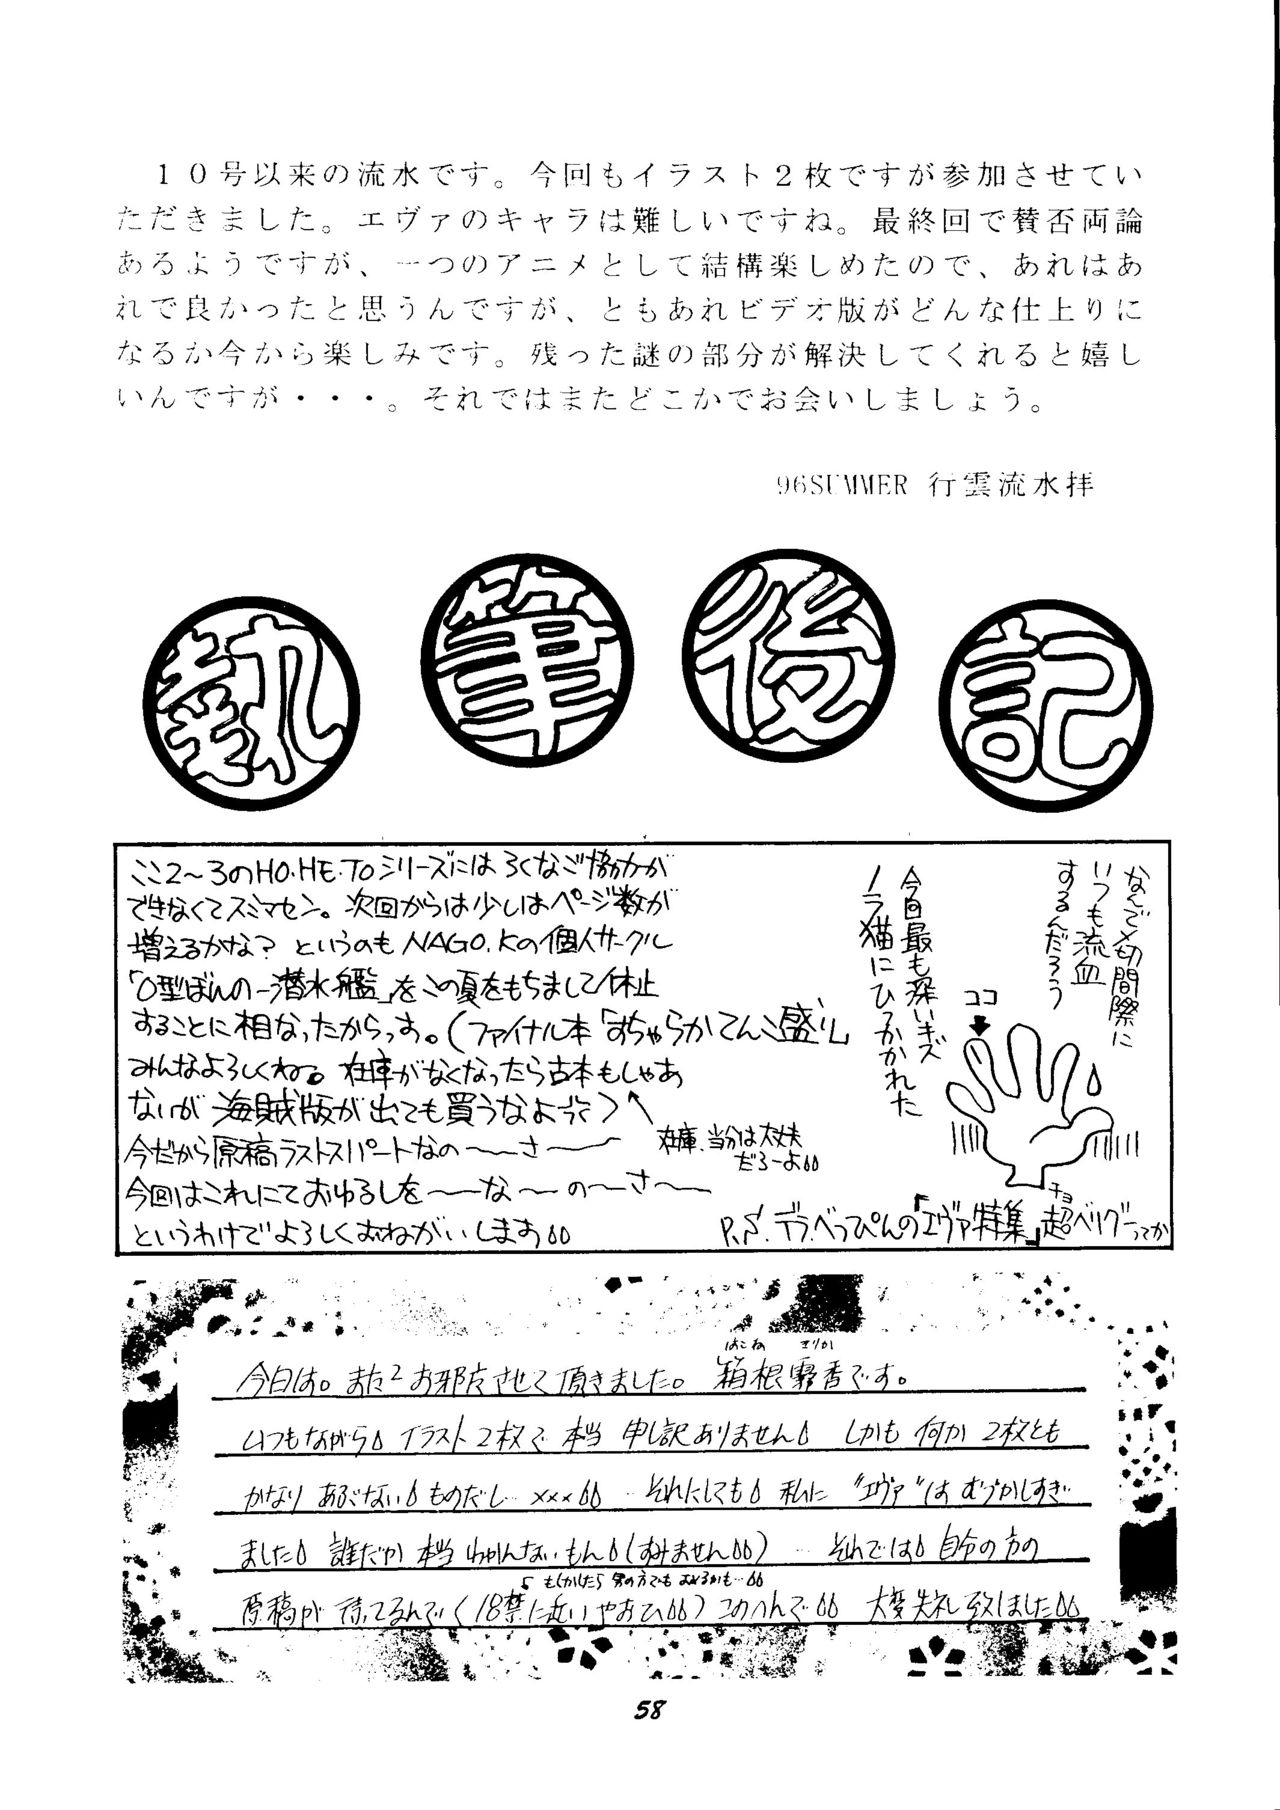 １０号以来の流水です。今回もイラスト２枚ですが参加させてい
ただきました。エヴァのキャラは難しいですね。最終回で賛否両論
あるようですが、一つのアニメとして結構楽しめたので、あれはあ
れで良かったと思うんですが、ともあれビデオ版がどんな仕上りに
なるか今から楽しみです。残った謎の部分が解決してくれると嬉し
いんですが・・・。それではまたどこかでお会いしましょう。
96SUMMER 行雲流水拝
執筆後記
ここ2〜3のHO・HE・TOシリーズにはろくなご協力が
できなくてスミマセン。次回からは少しはページ数が
増えるかな? というのもNAGO.Kの個人サークル
「O型ぼんの一潜水艦」をこの夏をもちまして休止
することに相なったからっす。(ファイナル本「おちゃらかてんこ盛り」
みんなよろしくねっ。在庫がなくなったら古本もしゃあ
ないが海賊版が出ても買うなよ)
在庫、当分は大丈夫
だろーよ
今だから原稿ラストスパートなの〜〜さ〜〜
今回はこれにておゆるしを〜〜な〜の〜さ〜
というわけでよろしくおねがいします
なんで〆切間際に
いつも流血
するんだろう
今回最も深いキズ
ノラ猫にひっかかれた
ココ
P.S.デラべっぴんの「エヴァ特集」超ベリグーってか
チョ
はこね きりか
今日は。また2お邪魔させて頂きました。箱根霧香です。
いつもながらイラスト2枚で本当申し訳ありません しかも何か2枚とも
かなりあぶないものだし…×××…それにしても私に"エヴァ"はむづかしすぎ
ました 誰だか本当わかんないもん(すみません)…それでは自分の方の
もしかしたら男の方でもおみるかも…
原稿が待ってるんで(18禁に近いやおひ)このへんで 大変失礼致しました
58